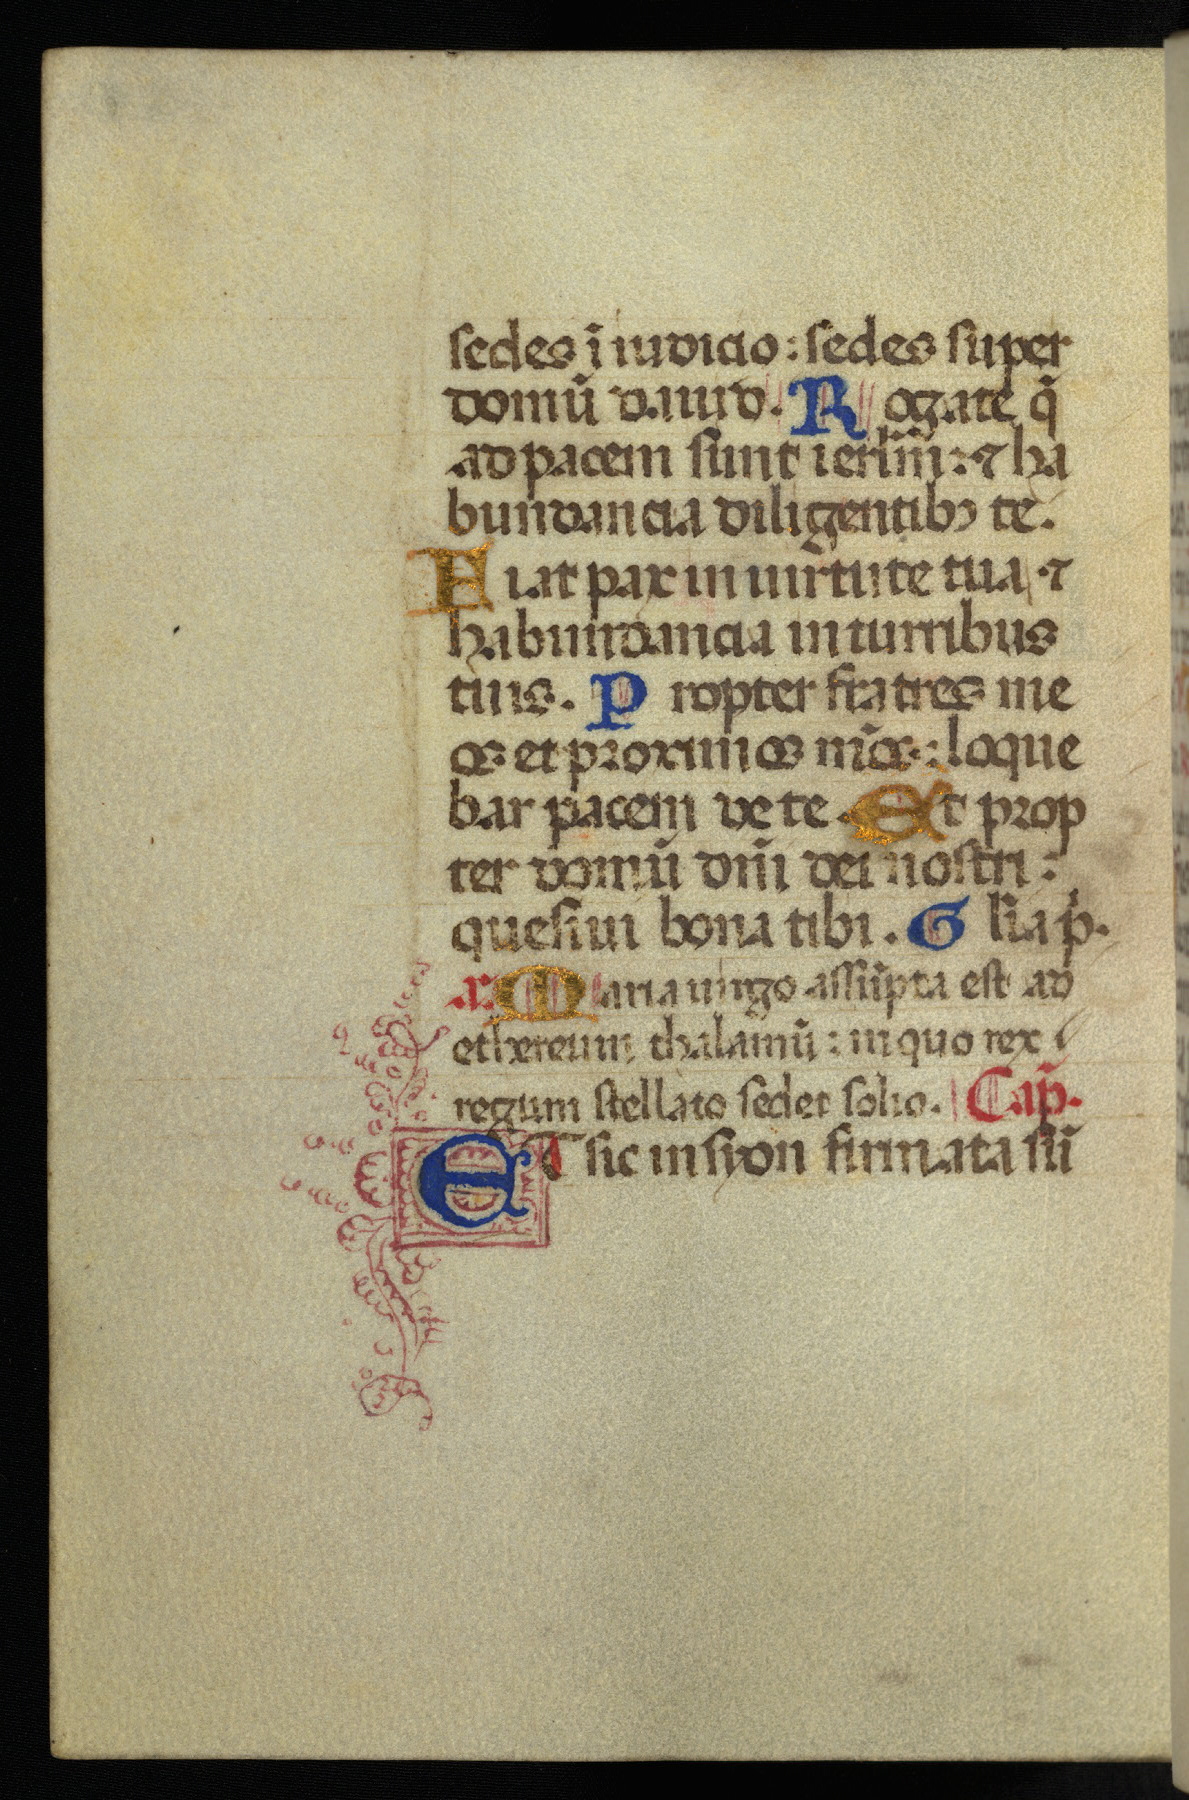 sedes ī iudicio: sedes super
domū dauid. Rogate q̄
ad pacem sunt ierlm̄: ⁊ ha
bundancia diligentibꝫ te.
Fiat pax in uirtute tua ⁊
habundancia in turribus
tuis. Propter fratres me
os et proximos mōs: loque
bar pacem de te. Et prop
ter domū dn̄i dei nostri:
quesiui bona tibi. Gl̄ia p̄.
a. Maria uirgo assūpta est ad
ethereum thalamū: in quo rex
regum stellato sedet solio. Cap̄.
ET sic in syon firmata sū